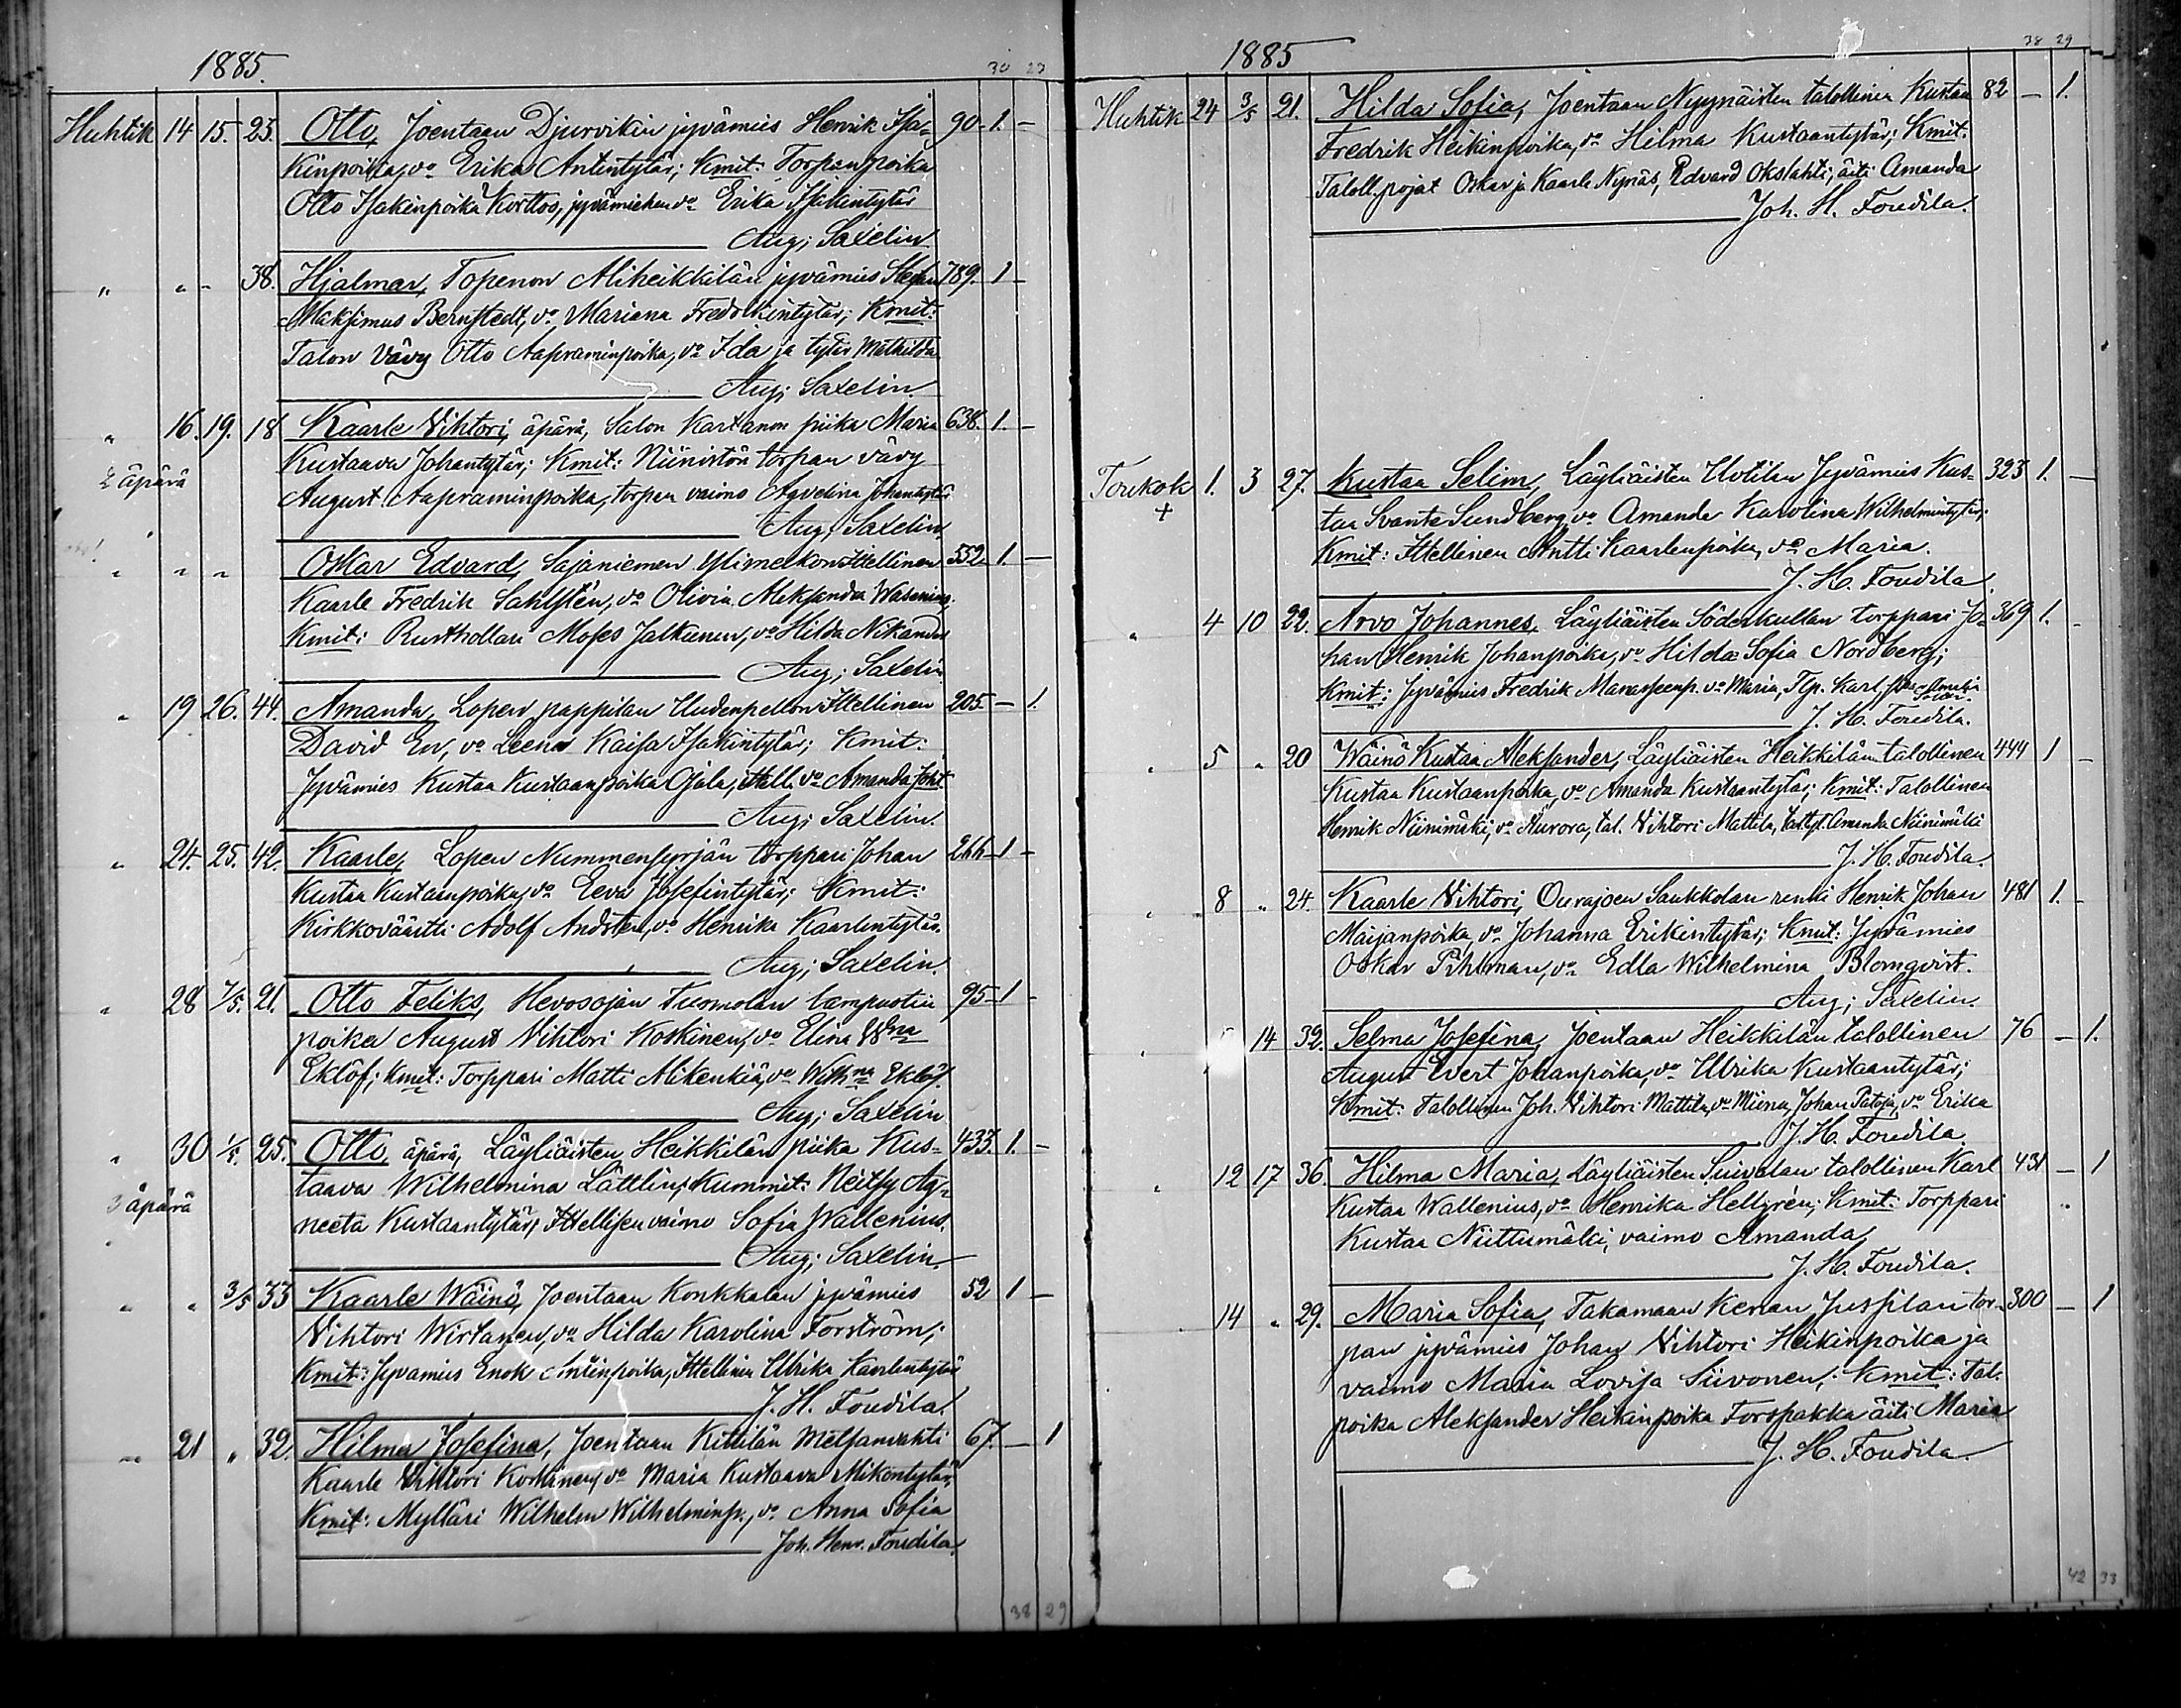 1885.
30 23
Huhtik 14 15. 25. Otto, Joentaan Djurvikin jyvämies Henrik Isa- 90. 1. —
kinpoika, vo Erika Antintytär; Kmit: Torpanpoika
Otto Isakinpoika Korttos, jyvämiehen vo Erika Isakintytär
Aug; Saxelin
„ „ „ 38. Hjalmar, Topenon Aliheikkilän jyvämies Stefan 789. 1 —
Maksimus Bernstedt, vo Mariana Fredrikintytär; Kmit:
Talon Vävy Otto Aapraminpoika, vo Ida ja tytär Mathilda
Aug; Saxelin.
„ 16. 19. 18 Kaarle Vihtori, äpärä, Salon Kartanon piika Maria 638. 1. —
Kustaava Johantytär; Kmit: Niinistön torpan vävy
2 äpärä
August Aapraminpoika, torpan vaimo Agvelina Johantytär
Aug; Saxelin.
„ „ „ Oskar Edvard, Sajaniemen Ylimelkon Ittellinen 552. 1. —
Kaarle Fredrik Sahlstén, vo Olivia Aleksandra Wasenius,
Kmit: Rusthollari Moses Jalkunen, vo Hilda Nikander
Aug; Saxelin
„ 19 26. 44. Amanda, Lopen pappilan Uudenpellon Ittellinen 205 — 1.
David En, vo Leena Kaisa Isakintytär; Kmit:
Jyvämies Kustaa Kustaanpoika Ojala, ittell. vo Amanda Joht.
Aug; Saxelin.
„ 24. 25. 42. Kaarle, Lopen Nummensyrjän torppari Johan 266 1 —
Kustaa Kustaanpoika, vo Eeva Josefintytär; Kmit:
Kirkkoväärtti Adolf Andsten, vo Henrika Kaarlentytär.
Aug; Saxelin.
„ 28 7/5. 21. Otto Feliks, Hevosojan Tuomolan lampuotin 95 1 —
poika August Vihtori Koskinen, vo Elina Wna
Eklöf; Kmit: Torppari Matti Mikenkiä, vo Wilhna Eklöf.
Aug; Saxelin
„ 30 1/5. 25. Otto, äpärä, Läyliäisten Heikkilän piika Kus- 433. 1. —
taava Wilhelmina Lättlin; Kummit: Neitsy Ag-
3 äpärä
neeta Kustaantytär, Ittellisen vaimo Sofia Wallenius.
Aug; Saxelin.
„ „ 3/5 33 Kaarle Wäinö, Joentaan Konkkalan jyvämies 52 1 —
Vihtori Wirtanen, vo Hilda Karolina Forström;
Kmit: Jyvämies Enok Antinpoika, Ittellinen Ulrika Kaarlentytär
J. H. Foudila.
„ 21 „ 32. Hilma Josefina, Joentaan Kittilän Metsänvahti 67. — 1
Kaarle Vihtori Koskinen, vo Maria Kustaava Mikontytär;
Kmit: Myllari Wilhelm Wilhelminp., vo Anna Sofia
Joh. Henr. Foudila.
38 29
1885
38 29
Huhtik 24 3/5 21. Hilda Sofia, Joentaan Nyynäisten talollinen Kustaa 82 — 1.
Fredrik Heikinpoika, vo Hilma Kustaantytär; Kmit.
Taloll. pojat Oskar ja Kaarle Nynäs, Edvard Okslahti, äiti Amanda
Joh. H. Foudila.
Toukok 1. 3 27. Kustaa Selim, Läyliäisten Uotilan Jyvämies Kus- 323 1. —
+
taa Svante Sundberg, vo Amanda Karolina Wilhelmintytär;
Kmit: Ittellinen Antti Kaarlenpoika, vo Maria.
J. H. Foudila
„ 4 10 22. Arvo Johannes, Läyliäisten Söderkullan torppari Jo- 369 1. —
han Henrik Johanpoika, vo Hilda Sofia Nordberg;
Kmit: Jyvämies Fredrik Manasseenp. vo Maria, Tlp. Karl
J. H. Foudila.
„ 5 „ 20 Wäinö Kustaa Aleksander, Läyliäisten Heikkilän talollinen 444 1 —
Kustaa Kustaanpoika, vo Amanda Kustaantytär; Kmit: Talollinen
Henrik Niinimäki, vo Aurora, tal. Vihtori Mattila, tal. tyt. Amanda Niinimäki
J. H. Foudila.
„ 8 „ 24. Kaarle Vihtori, Ourajoen Saukkolan renki Henrik Johan 481 1. —
Maijanpoika, vo Johanna Erikintytär; Kmit: Jyvämies
Oskar Pihlman, vo Edla Wilhelmina Blomqvist.
Aug; Saxelin.
„ 14 32. Selma Josefina, Joentaan Heikkilän talollinen 76 — 1.
August Evert Johanpoika, vo Ulrika Kustaantytär;
Kmit: Talollinen Joh. Vihtori Mattila, vo Miina, Johan Patoja, vo Erika
J. H. Foudila.
„ 12 17 36. Hilma Maria, Läyliäisten Suivalan talollinen Karl 431 — 1
Kustaa Wallenius, vo Henrika Hellgrén; Kmit: Torppari
Kustaa Niittumäki, vaimo Amanda
J. H. Foudila.
14 „ 29. Maria Sofia, Takamaan Keran Jussilan tor- 300 — 1
pan jyvämies Johan Vihtori Heikinpoika ja
vaimo Maria Lovisa Siivonen; Kmit: Tal.
poika Aleksander Heikinpoika Forspakka äiti Maria
J. H. Foudila.
42 33